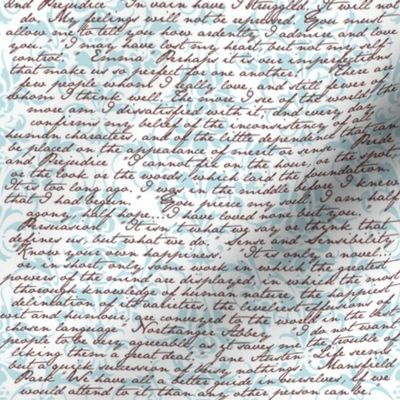 and Prejudice In vain have I struggled. It will not
do. My feelings will not be repressed. You must
allow me to tell you how ardently I admire and love
you. I may have lost my heart, but not my self-
control. Emma Perhaps it is our imperfections
that make us so perfect for one another! There are
few people whom I really love, and still fewer of
whom I think well. The more I see of the world, the
more am I dissatisfied with it; and every day
confirms my belief of the inconsistency of all
human characters, and of the little dependence that can
be placed on the appearance of merit or sense. Pride
and Prejudice I cannot fix on the hour, or the spot,
or the look or the words, which laid the foundation.
It is too long ago. I was in the middle before I knew
that I had begun. You pierce my soul. I am half
agony, half hope...I have loved none but you.
Persuasion It isn't what we say or think that
defines us, but what we do. Sense and Sensibility
Know your own happiness. It is only a novel...
or, in short, only some work in which the greatest
powers of the mind are displayed, in which the most
thorough knowledge of human nature, the happiest
delineation of its varieties, the liveliest effusions of
wit and humour, are conveyed to the world in the best
chosen language Northanger Abbey I do not want
people to be very agreeable, as it saves me the trouble of
liking them a great deal. Jane Austen Life seems
but a quick succession of busy nothings Mansfield
Park We have all a better guide in ourselves, if we
would attend to it, than any other person can be.